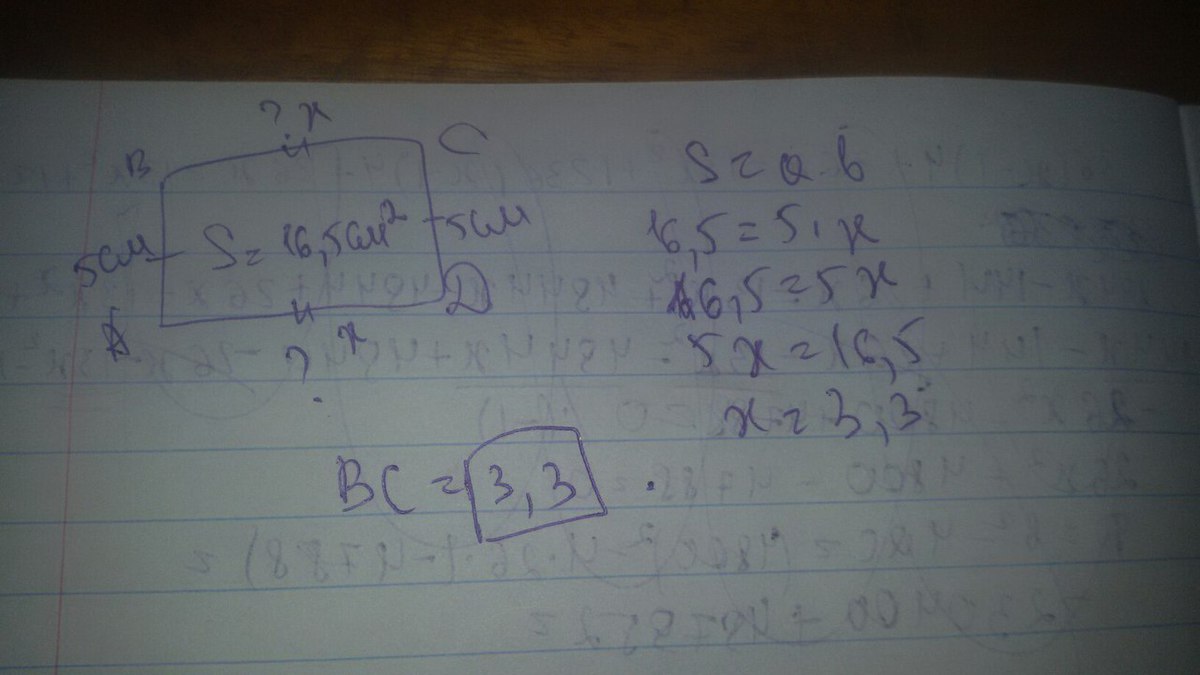 ? x
B
C
S = a·b
5см
S = 16,5см²
5см
16,5 = 5·x
A
D
16,5 = 5x
? x
5x = 16,5
x = 3,3
BC = 3,3